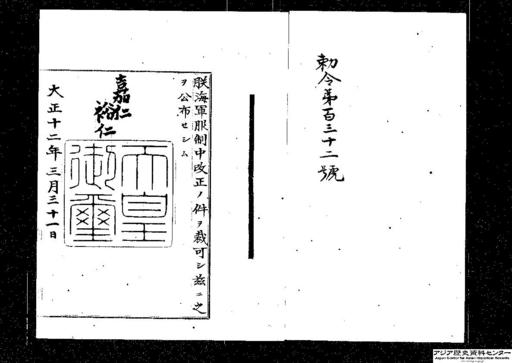 勅令第百三十二號
朕海軍服制中改正ノ件ヲ裁可シ茲ニ之
ヲ公布セシム
嘉仁
裕仁
天皇
御璽
大正十二年三月三十一日
アジア歴史資料センター
Japan Center for Asian Historical Records